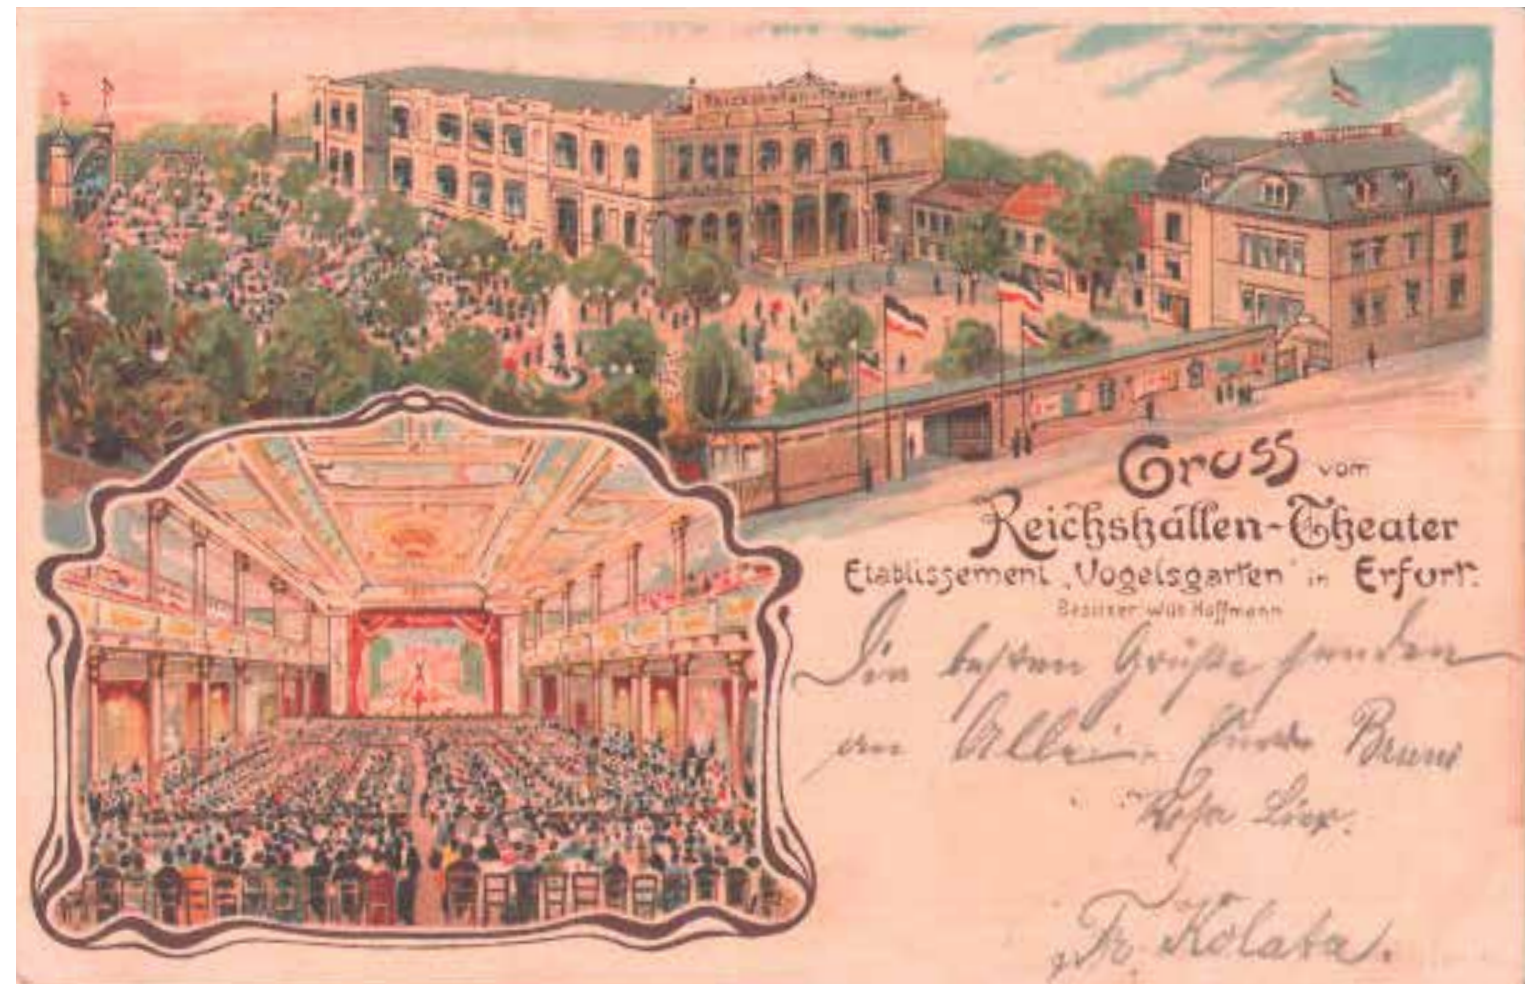 Reichshallen-Theater
Gruss vom
Reichshallen-Theater
Etablissement „Vogelsgarten“ in Erfurt.
Besitzer Wilh Hoffmann
Die besten Grüße senden
an Alle
Rosa
Fr. Kolata.